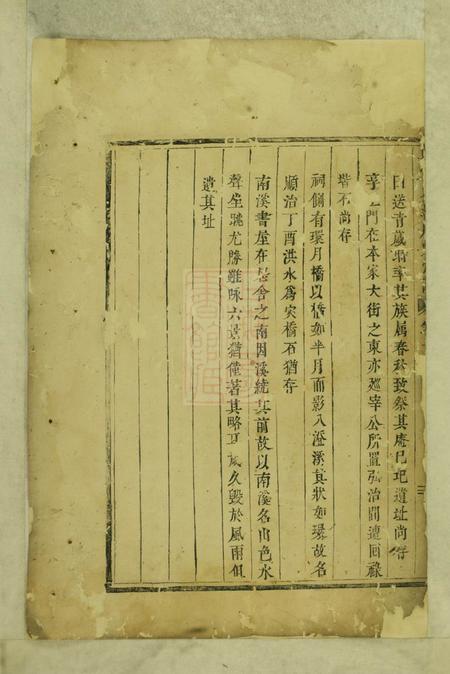 田送青歲時率其族屬春秋致祭其庵已圮遺址尚存
亭 門在本家大街之東亦廵宰公所置弘治間遭回祿
堦石尚存
祠側有環月橋以橋如半月而影入澄溪其狀如環故名
順治丁酉洪水爲灾橋石猶存
南溪書屋在 舍之南因溪繞其前故以南溪名山色水
聲坐眺尤勝雖咏六景猶僅著其略耳 久毀於風雨但
遺其址